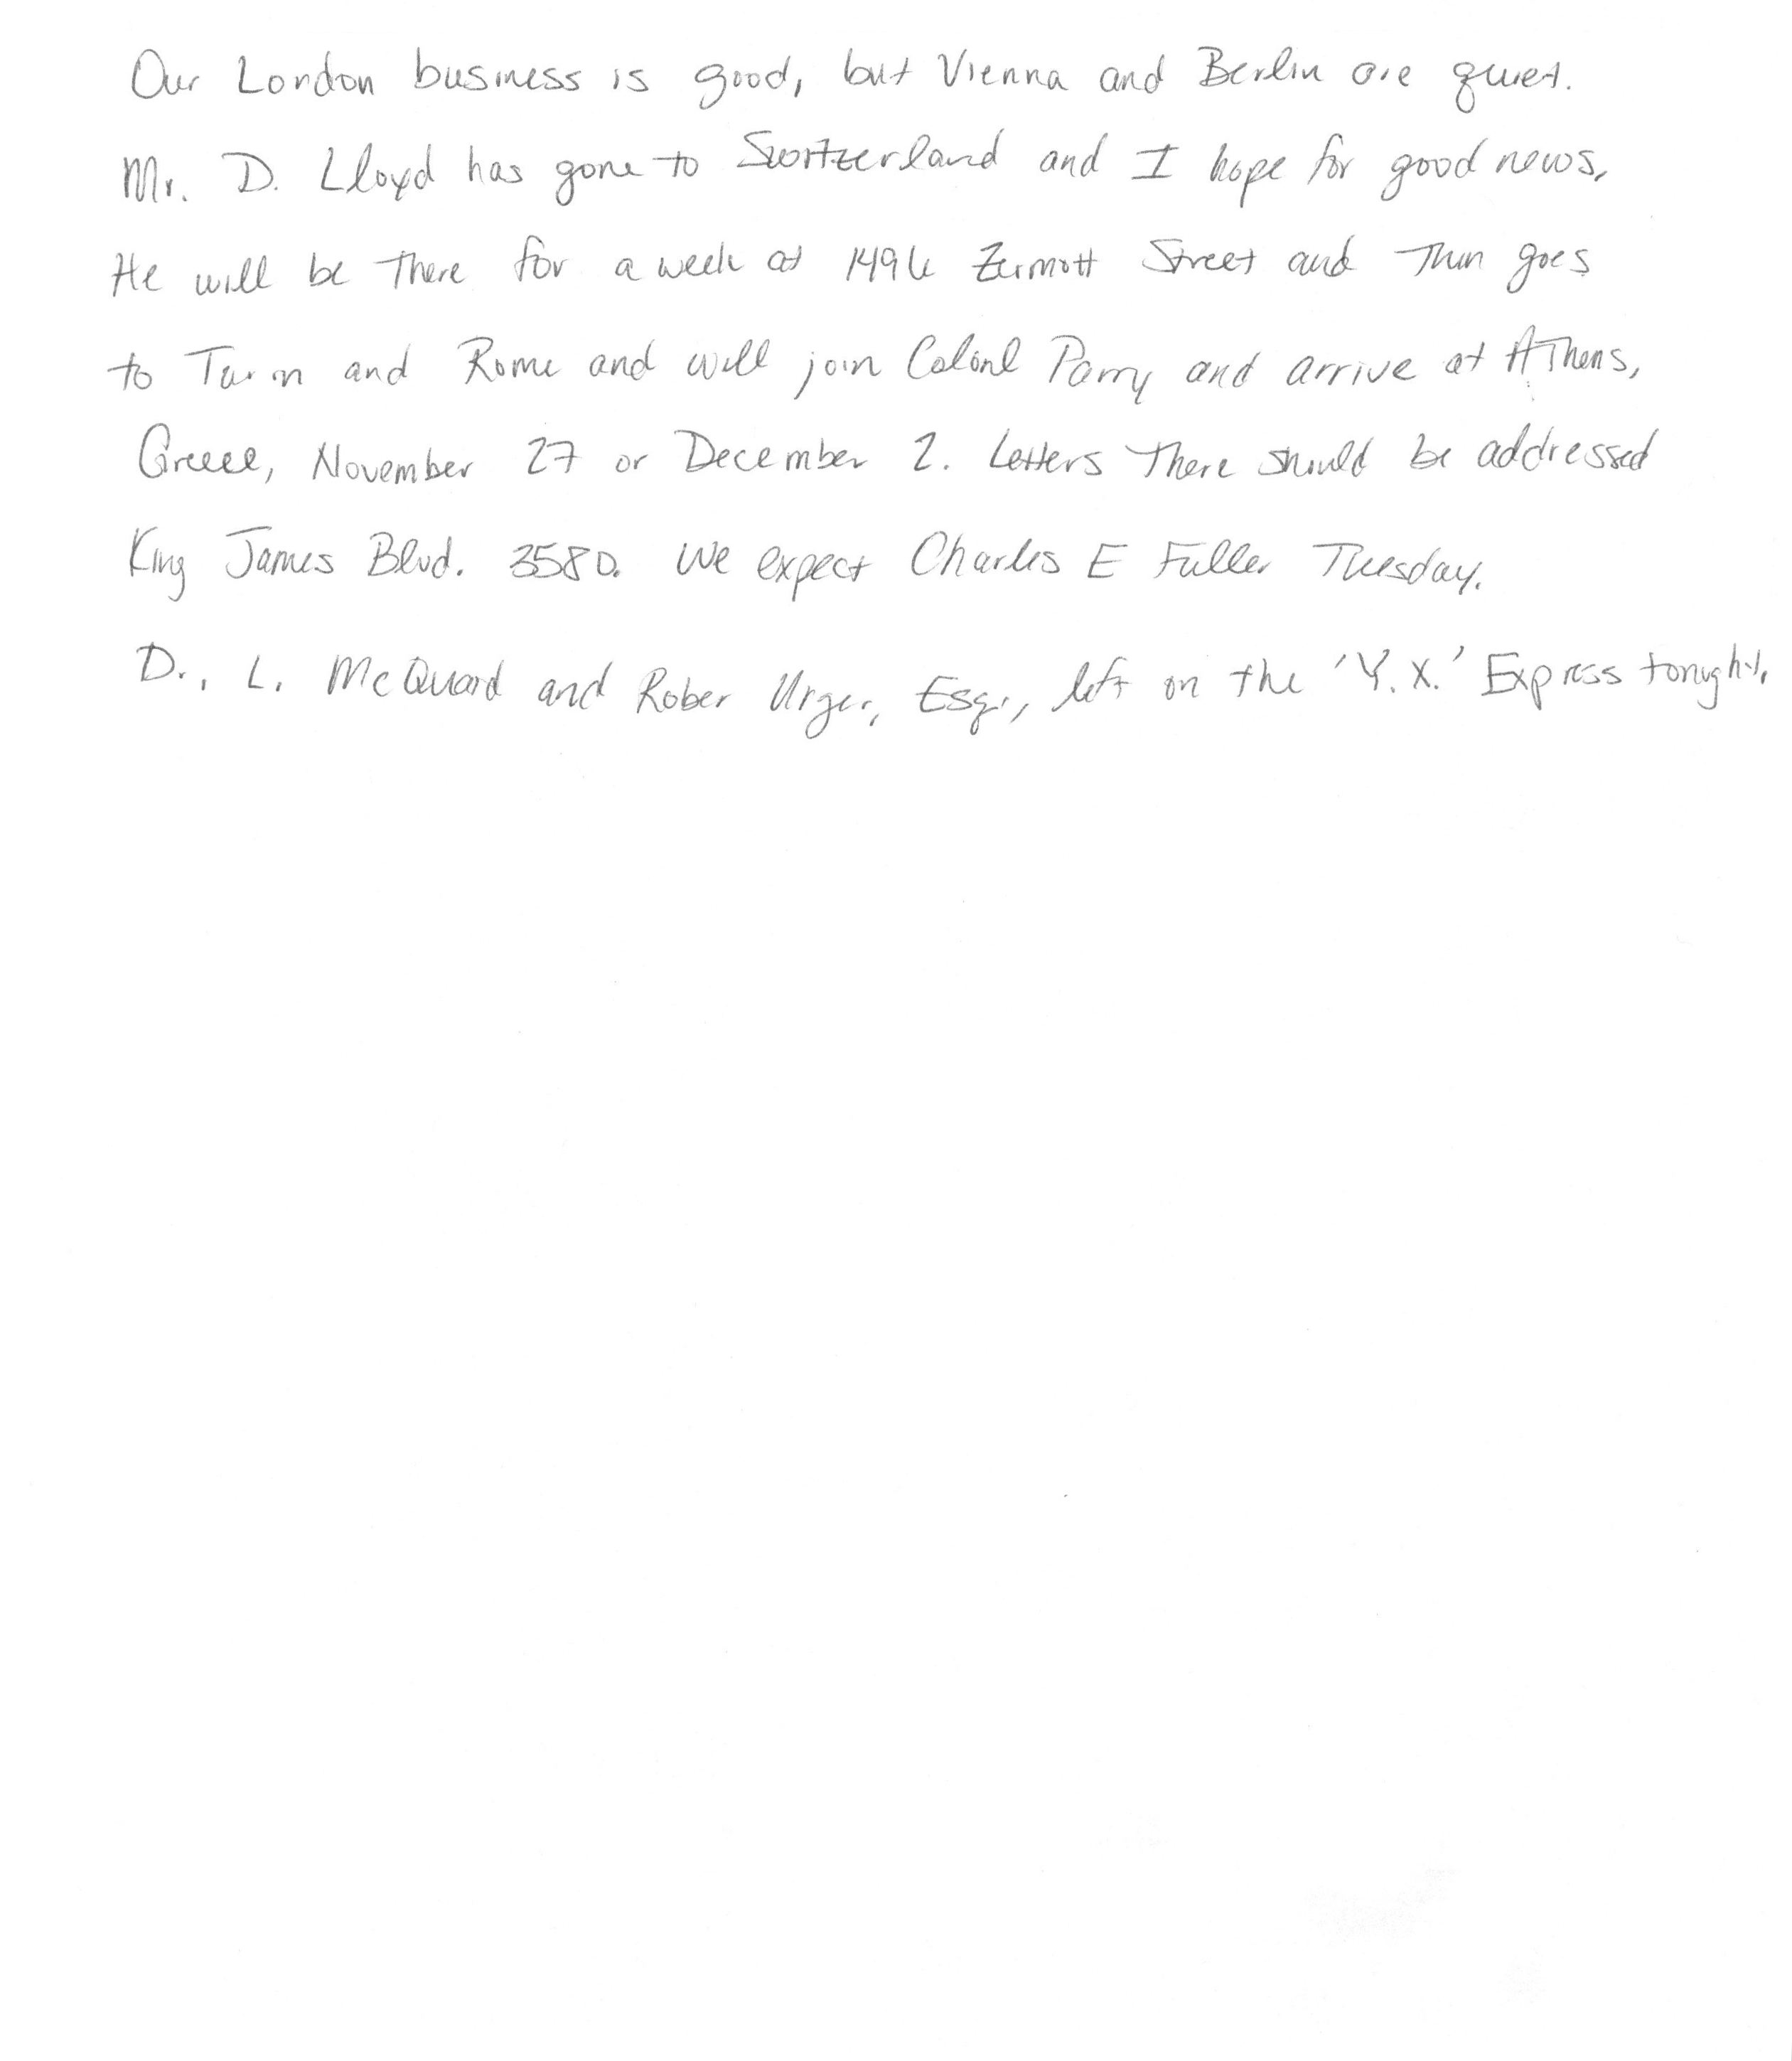 Our London business is good, but Vienna and Berlin are quiet.
Mr. D. Lloyd has gone to Switzerland and I hope for good news.
He will be there for a week at 1496 Zermott Street and then goes
to Turin and Rome and will join Colonl Parry and arrive at Athens,
Greece, November 27 or December 2. Letters there should be addressed
King James Blvd. 3580. We expect Charles E Fuller Tuesday.
Dr., L. McQuaid and Rober Urger, Esq., left on the 'Y.X.' Express tonight.